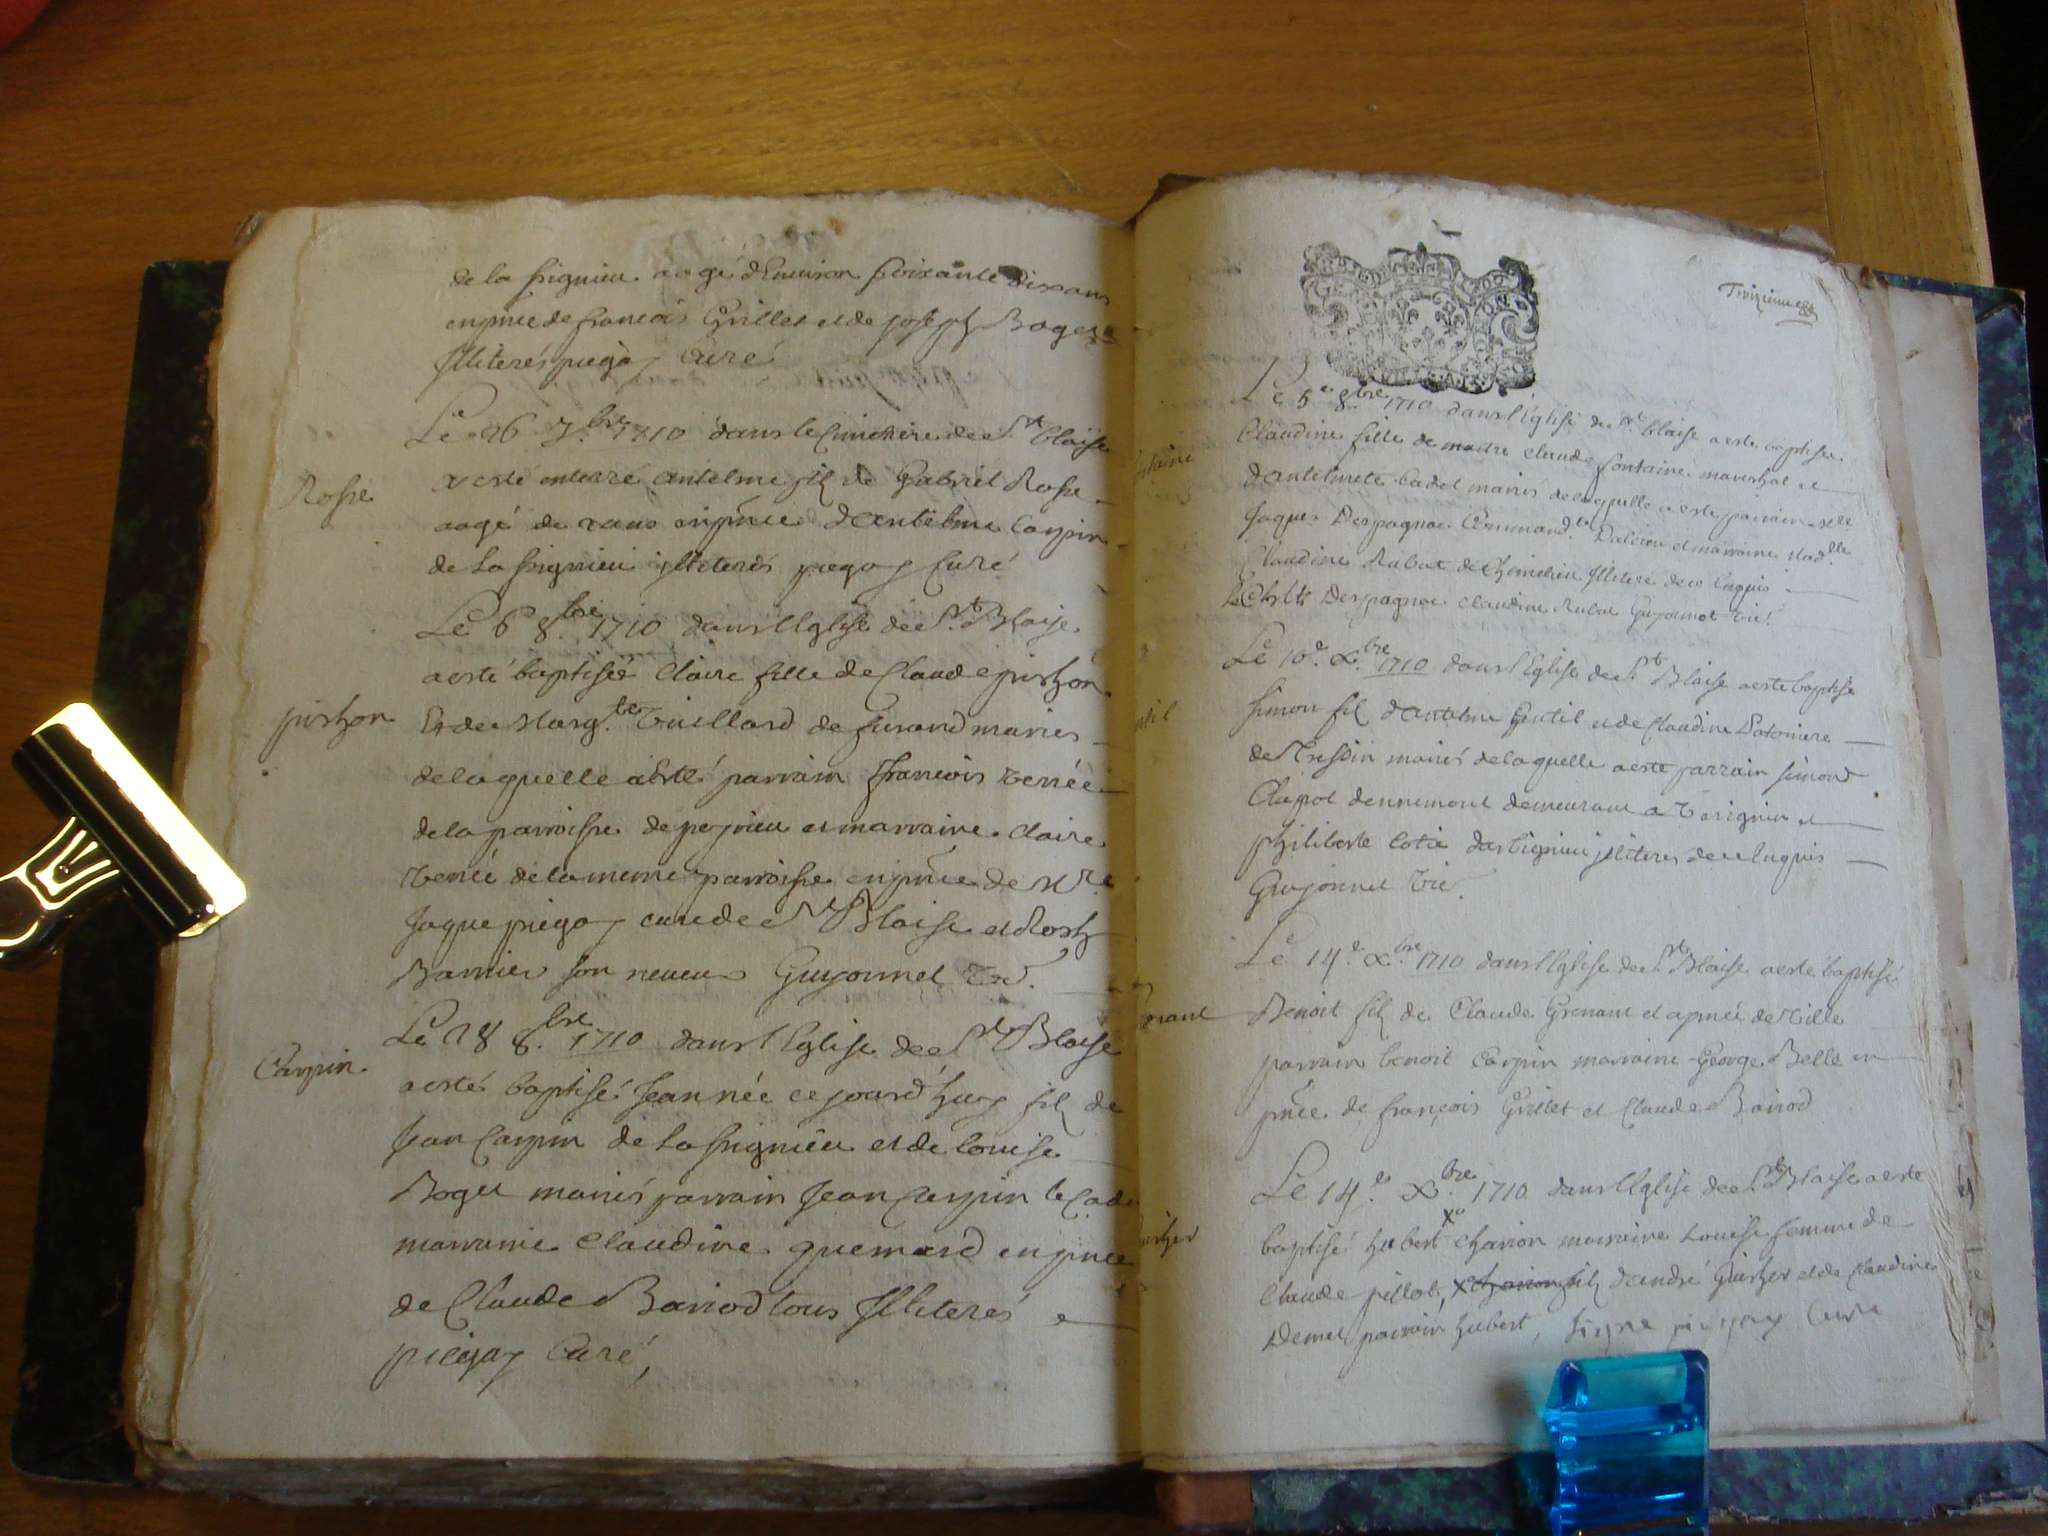 de la signieu aagé d'Environ soixante dix ans
en pnce de francois Grillet et de joseph Boget
Illiterés piegay Curé
Le 26 7.bre 1710 dans le Cimetiere de St blaise
Rosse
a esté enterré antelme fil de Gabriel Rosse
aagé de ans en pnce d'antelme Carpin
de La signieu illiterés piegay Curé
Le 6 8.bre 1710 dans l'Eglise de St Blaise
a esté baptisée Claire fille de Claude pirchon
pirchon
Et de Marg.te Vuillard de furand mariés
de laquelle a esté parrain francois venée
de la parroisse de peyrieu et marraine Claire
venée de la meme parroisse en pnce de Mre
Jaque piegay curé de St Blaise et Roch
Barnier son neveu Guyonnet Vic.
Le 28 8.bre 1710 dans l'Eglise de St Blaise
Carpin
a esté baptisé Jean née ce jourd'huy fil de
Jean Carpin de La signieu et de louise
Boget mariés parrain Jean Carpin le Cade
marraine Claudine quemard en pnce
de Claude Bariod tous Illiterés et
piegay Curé,
Troizieme
Le 5e 8.bre 1710 dans l'Eglise de St blaise a este baptisee
Claudine fille de maitre Claude fontaine mareschal et
ntaine
d'antelmete Cadet mariés de laquelle a este parrain
Jaques Despagnac Command.t et marraine Mad.lle
Claudine Rubat de Illiteré de ce Enquis
Despagnac Claudine Rubat Guyonnet Vic.
Le 10e X.bre 1710 dans l'Eglise de St Blaise a este baptisé
Simon fil d'antelme Gentil et de Claudine
ntil
de Tressin mariés de laquelle a este parrain simond
Clapot demeurant a Virignin et
philiberte d'arbignieu illiteres de ce Enquis
Guyonnet Vic.
Le 14e X.bre 1710 dans l'Eglise de St Blaise a esté baptisé
nant
Benoit fil de Claude Grenant et
parrain benoit Carpin marraine George Belle en
pnce de françois Grillet et Claude Bariod
Le 14e X.bre 1710 dans l'Eglise de St Blaise a esté
baptisé hubert charion marraine Louise femme de
Claude pillot, fil d'andré et de Claudine
Demet parrain hubert, signe piegay Curé